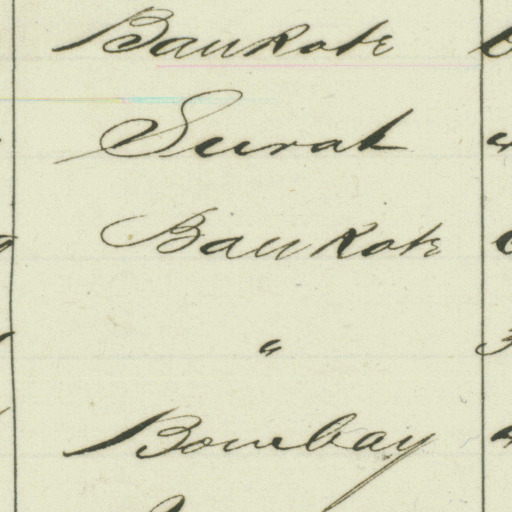 Bankote
Surat
Bankote
"
Bombay